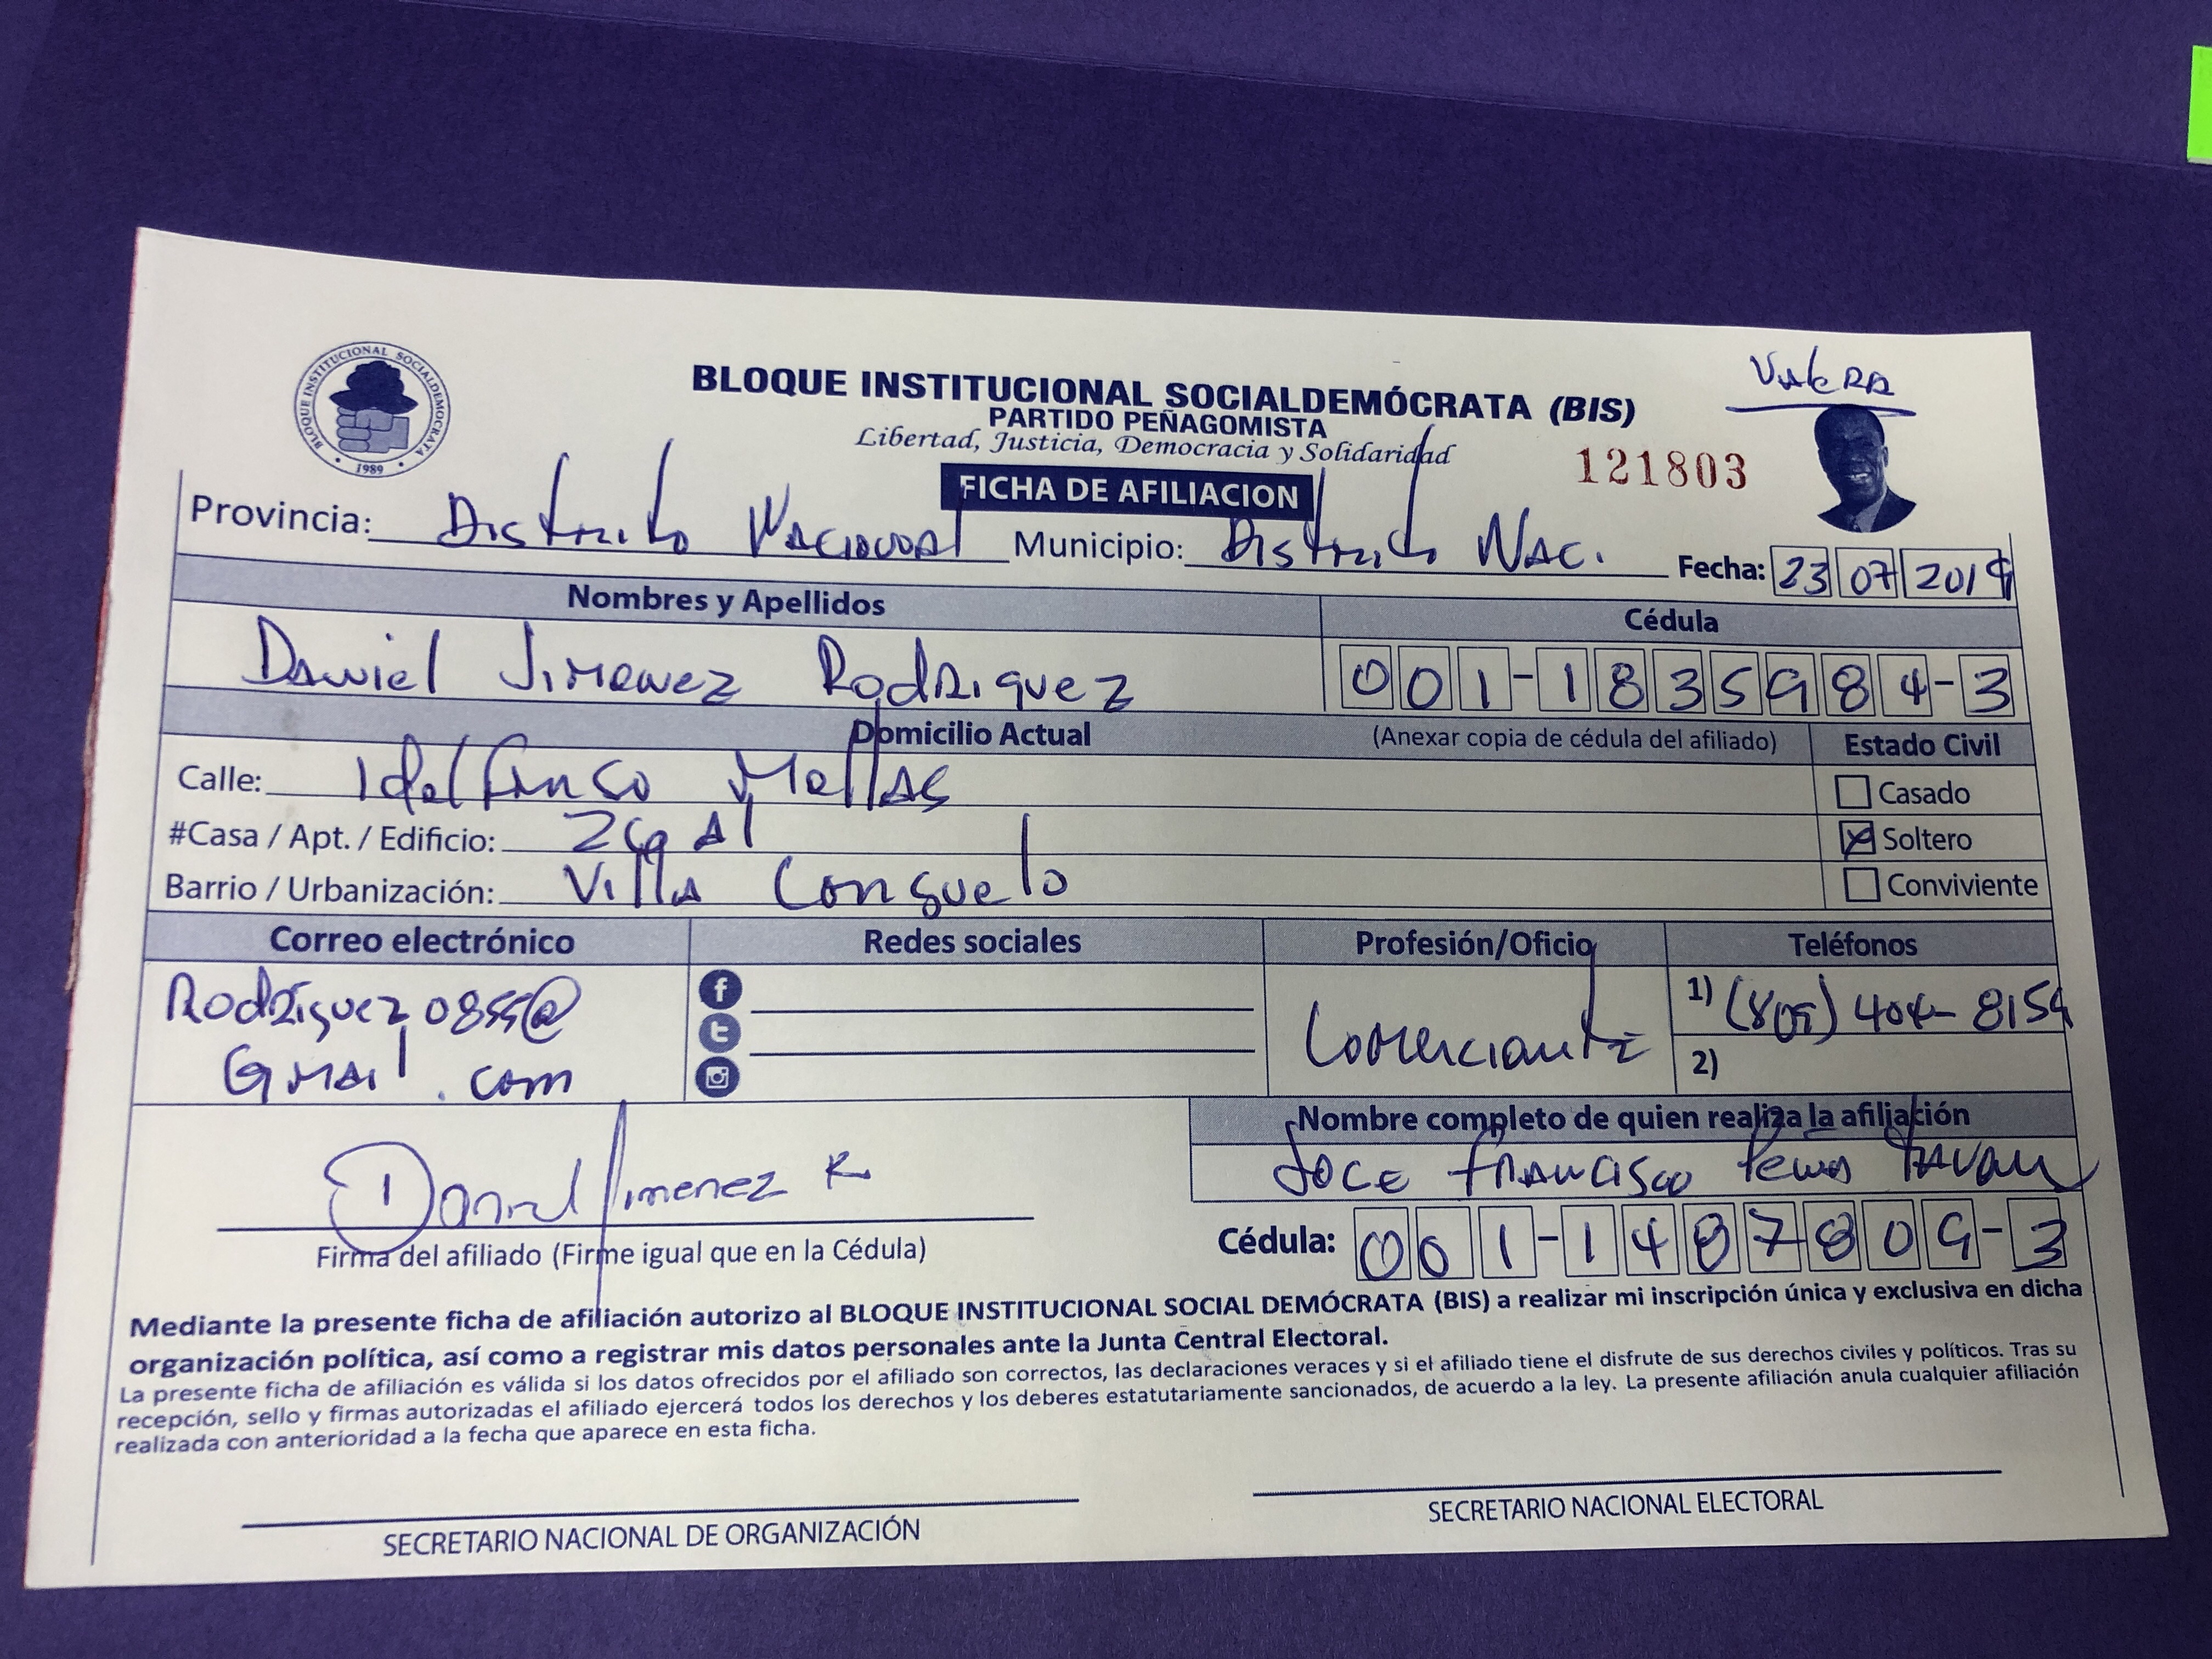 Valera
BLOQUE INSTITUCIONAL SOCIALDEMOCRATA
1989
BLOQUE INSTITUCIONAL SOCIALDEMÓCRATA (BIS)
PARTIDO PEÑAGOMISTA
Libertad, Justicia, Democracia y Solidaridad
121803
FICHA DE AFILIACION
Provincia: Distrito Nacional Municipio: Distrito Nac. Fecha: 23 07 2019
Nombres y Apellidos Cédula
Daniel Jimenez Rodriguez 001-1835984-3
Domicilio Actual (Anexar copia de cédula del afiliado) Estado Civil
Calle: Idelfonso Mellas Casado
#Casa / Apt. / Edificio: Soltero
Barrio / Urbanización: Villa Consuelo Conviviente
Correo electrónico Redes sociales Profesión/Oficio Teléfonos
Rodriguez0855@
Gmail.com
Comerciante
1) (809) 404-8154
2)
Nombre completo de quien realiza la afiliación
Joce Francisco Pena
Daniel Jimenez R
Firma del afiliado (Firme igual que en la Cédula)
Cédula: 001-1487809-3
Mediante la presente ficha de afiliación autorizo al BLOQUE INSTITUCIONAL SOCIAL DEMÓCRATA (BIS) a realizar mi inscripción única y exclusiva en dicha
organización política, así como a registrar mis datos personales ante la Junta Central Electoral.
La presente ficha de afiliación es válida si los datos ofrecidos por el afiliado son correctos, las declaraciones veraces y si el afiliado tiene el disfrute de sus derechos civiles y políticos. Tras su
recepción, sello y firmas autorizadas el afiliado ejercerá todos los derechos y los deberes estatutariamente sancionados, de acuerdo a la ley. La presente afiliación anula cualquier afiliación
realizada con anterioridad a la fecha que aparece en esta ficha.
SECRETARIO NACIONAL DE ORGANIZACIÓN
SECRETARIO NACIONAL ELECTORAL